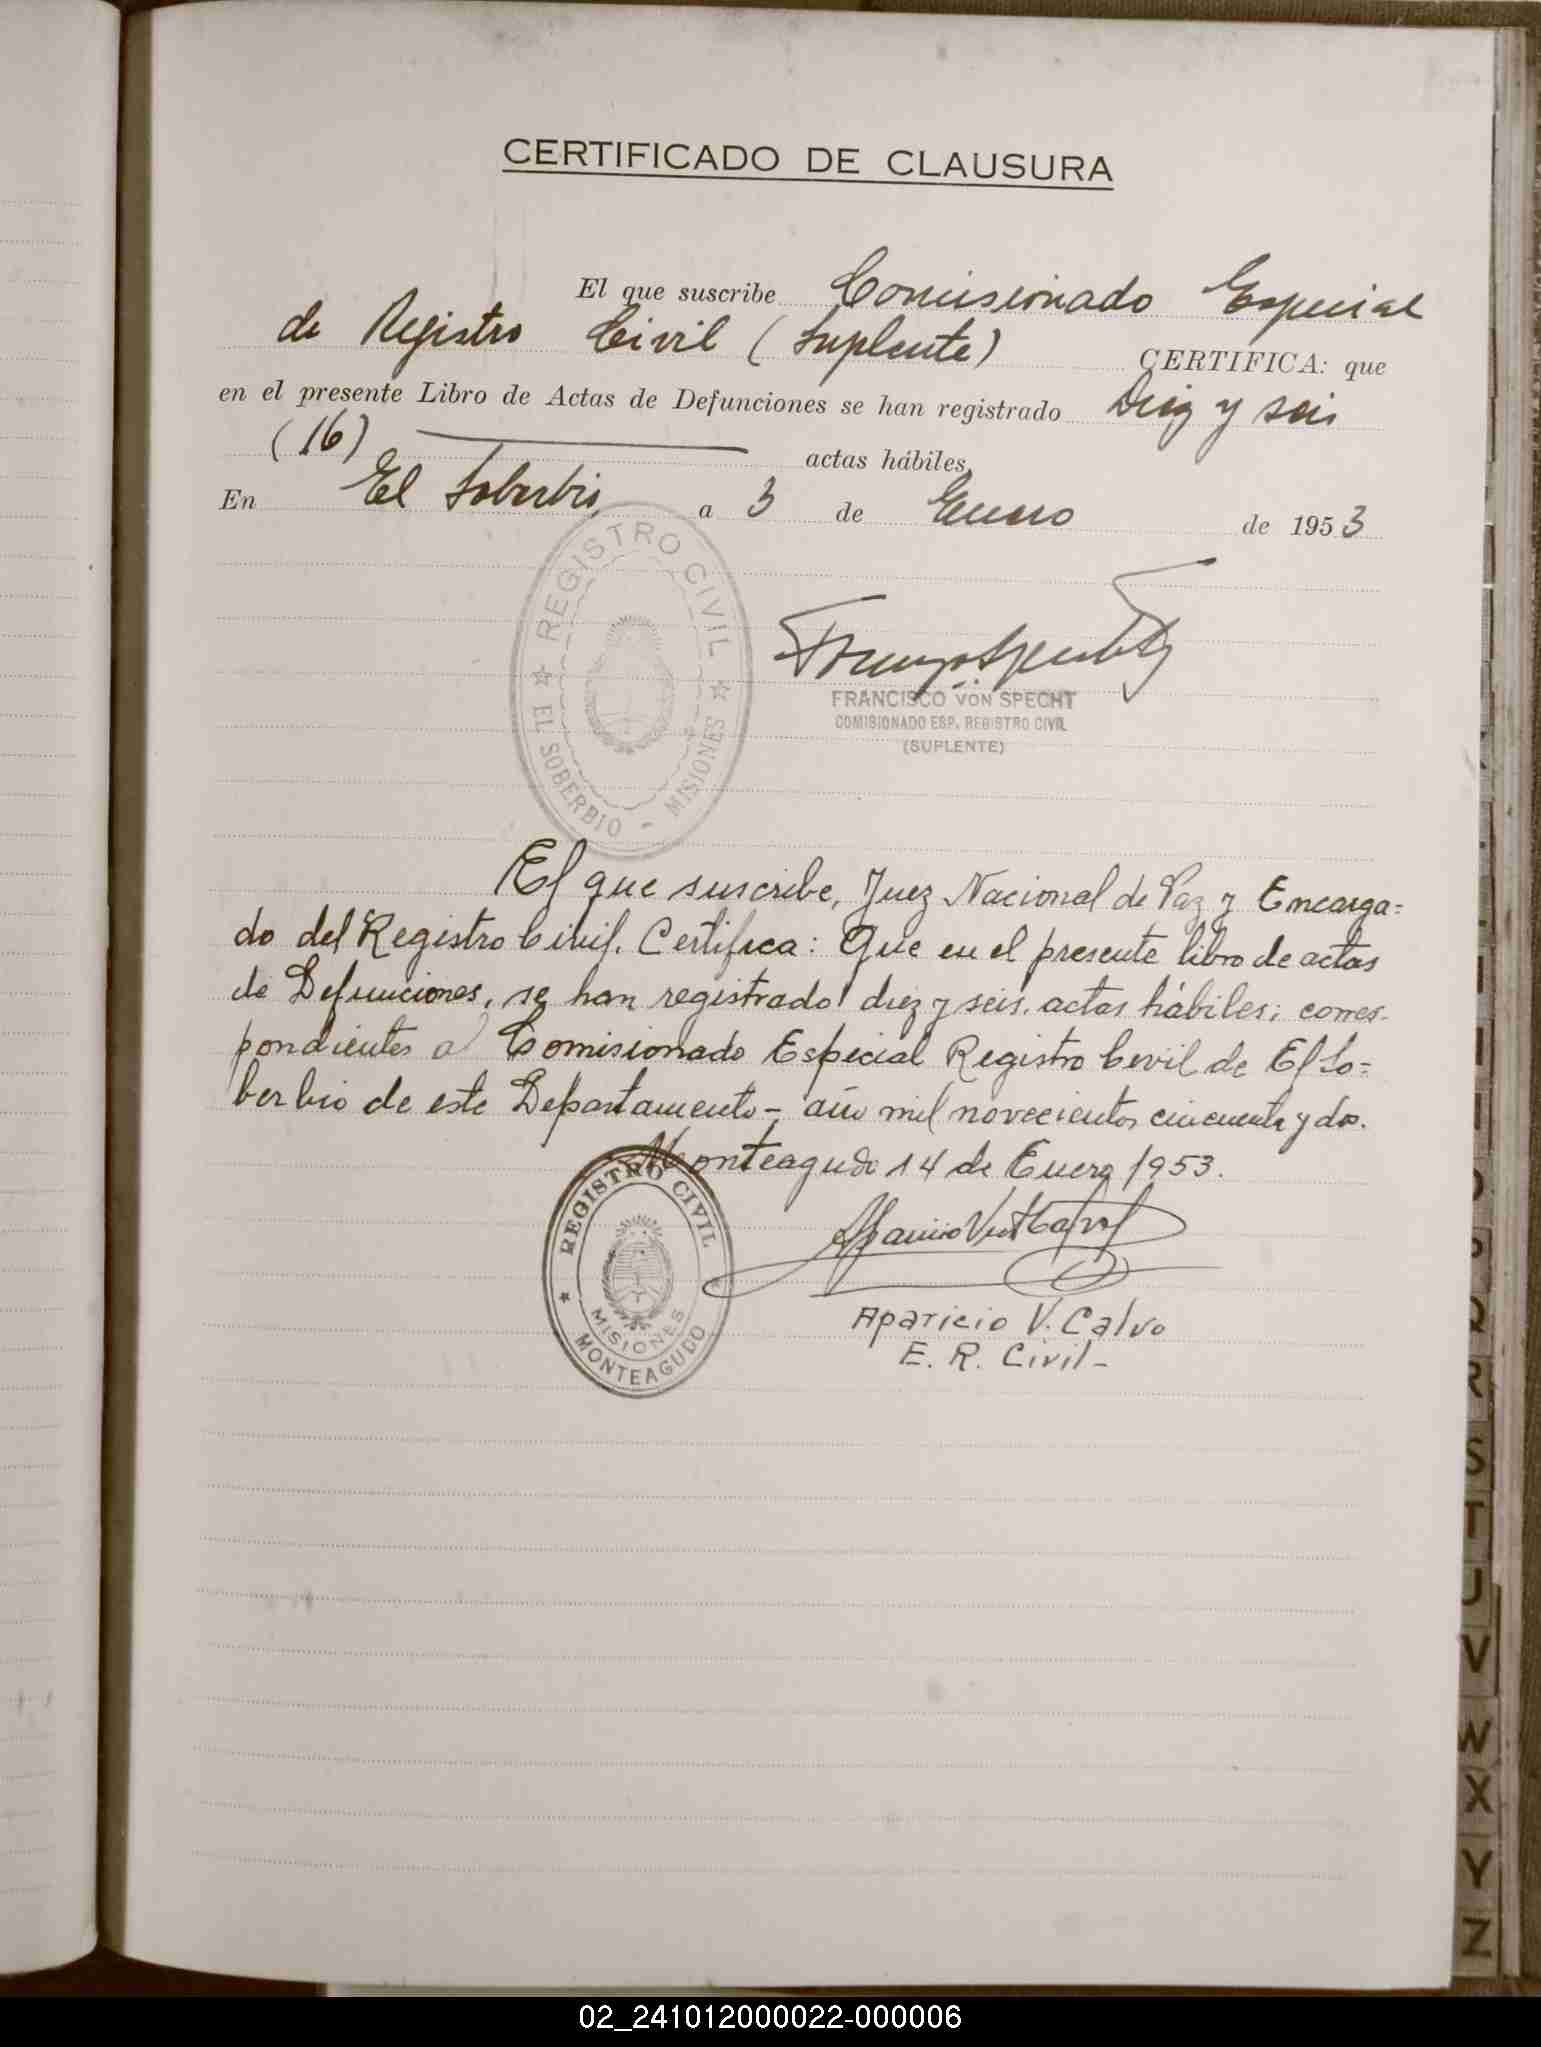 CERTIFICADO DE CLAUSURA
El que suscribe Comisionado Especial
de Registro Civil (Suplente) CERTIFICA: que
en el presente Libro de Actas de Defunciones se han registrado Diez y seis
(16) actas hábiles.
En El Soberbio, a 3 de Enero de 1953
REGISTRO CIVIL
EL SOBERBIO - MISIONES
FRANCISCO VON SPECHT
COMISIONADO ESP. REGISTRO CIVIL
(SUPLENTE)
El que suscribe, Juez Nacional de Paz y Encarga=
do del Registro Civil. Certifica: Que en el presente libro de actas
de Defunciones, se han registrado diez y seis. actas hábiles; corres-
pondientes a Comisionado Especial Registro Civil de El So=
berbio de este Departamento - año mil novecientos cincuenta y dos.
Monteagudo 14 de Enero 1953.
REGISTRO CIVIL
MISIONES
MONTEAGUDO
Aparicio V. Calvo
E. R. Civil-
P
Q
R
S
T
U
V
W
X
Y
Z
02_241012000022-000006